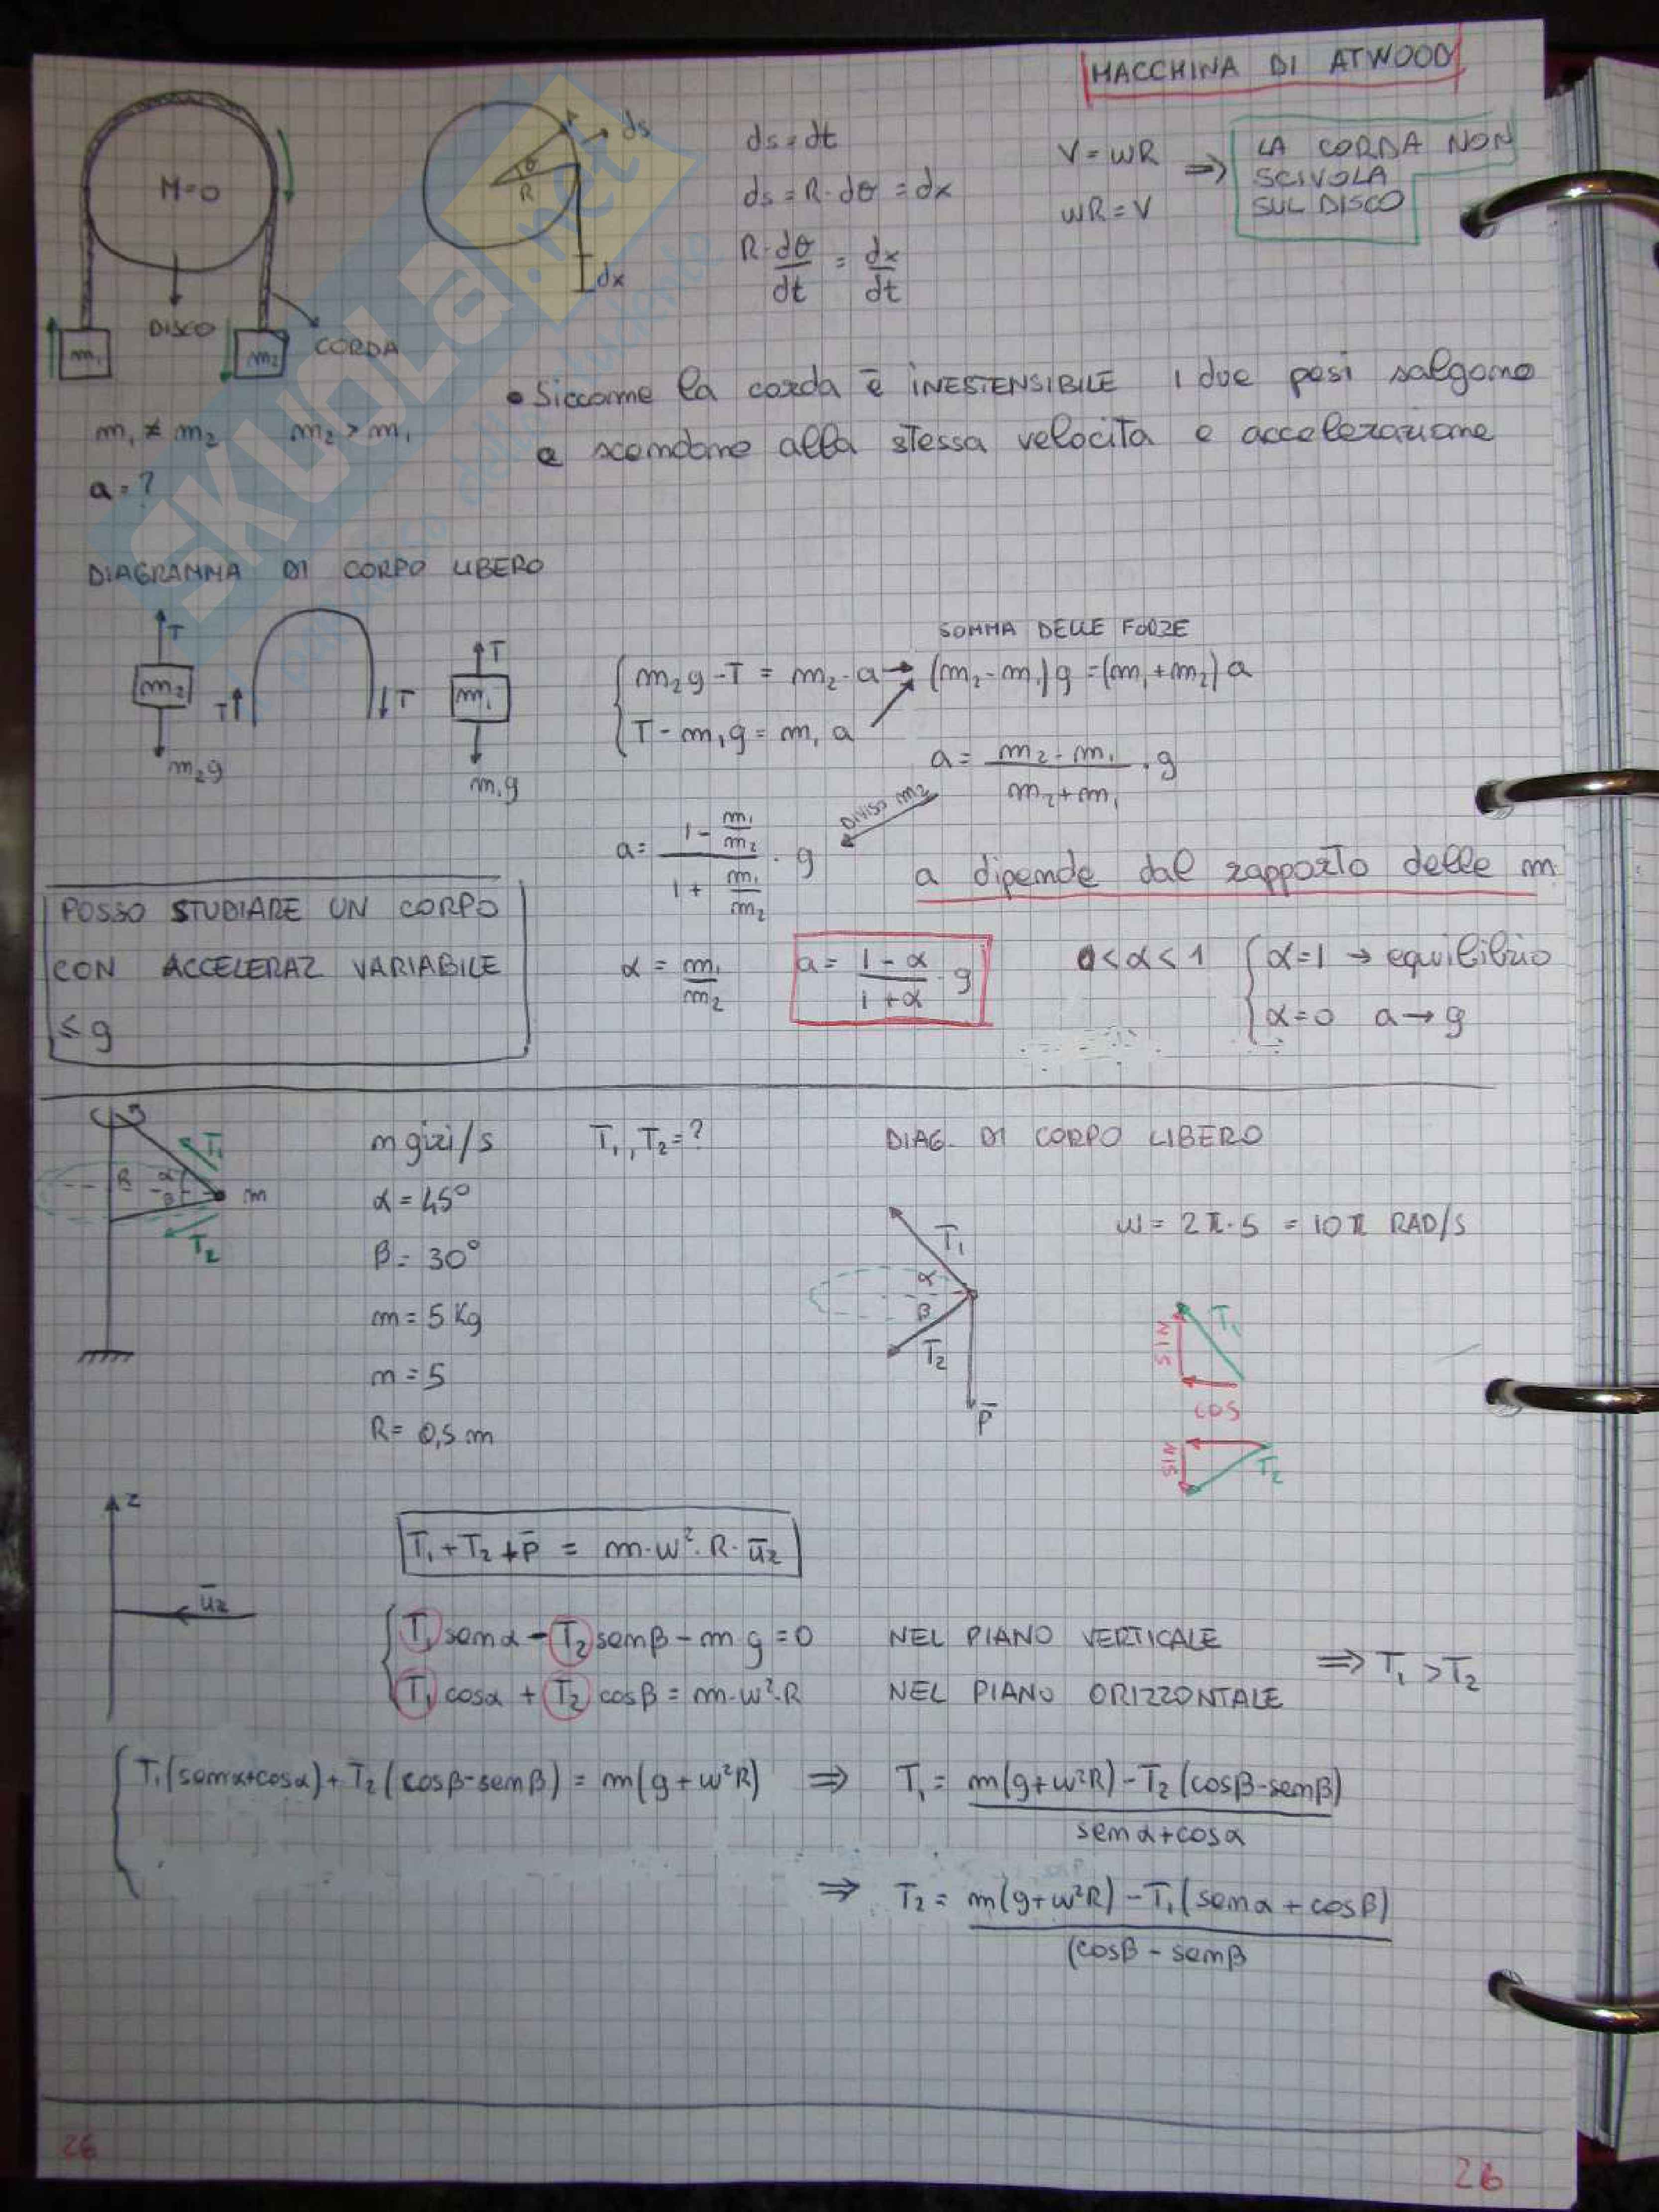 MACCHINA DI ATWOOD
M=0
DISCO
CORDA
m₁
m₂
θ
R
ds
dx
ds=dt
ds=R·dθ=dx
R·dθ/dt = dx/dt
V=WR
WR=V
⇒
LA CORDA NON
SCIVOLA
SUL DISCO
m₁≠m₂ m₂>m₁
a=?
• Siccome la corda è INESTENSIBILE i due pesi salgono
e scendono alla stessa velocità e accelerazione
DIAGRAMMA DI CORPO LIBERO
T
m₂
m₂g
T
T
T
m₁
m₁g
SOMMA DELLE FORZE
m₂g-T = m₂·a → (m₂-m₁)g=(m₁+m₂)a
T-m₁g=m₁a
a= (m₂-m₁)/(m₂+m₁)·g
DIVISO m₂
a= (1-m₁/m₂)/(1+m₁/m₂)·g
a dipende dal rapporto delle m
POSSO STUDIARE UN CORPO
CON ACCELERAZ VARIABILE
≤g
α=m₁/m₂
a= (1-α)/(1+α) g
0<α<1
α=1 → equilibrio
α=0 a→g
T₁
R
α
β
m
T₂
n giri/s T₁,T₂=?
α=45°
β=30°
m=5 Kg
n=5
R=0,5 m
DIAG. DI CORPO LIBERO
T₁
α
β
T₂
P̄
W=2π·5 = 10π RAD/S
SIN
T₁
COS
SIN
T₂
z
ūr
T₁+T₂+p̄ = m·W²·R·ūr
T₁senα-T₂senβ-mg=0 NEL PIANO VERTICALE
T₁cosα+T₂cosβ=m·W²·R NEL PIANO ORIZZONTALE
⇒ T₁>T₂
T₁(senα+cosα)+T₂(cosβ-senβ)=m(g+W²R) ⇒ T₁= (m(g+W²R)-T₂(cosβ-senβ))/(senα+cosα)
⇒ T₂= (m(g+W²R)-T₁(senα+cosβ))/(cosβ-senβ
26
26
SKUOLA.net